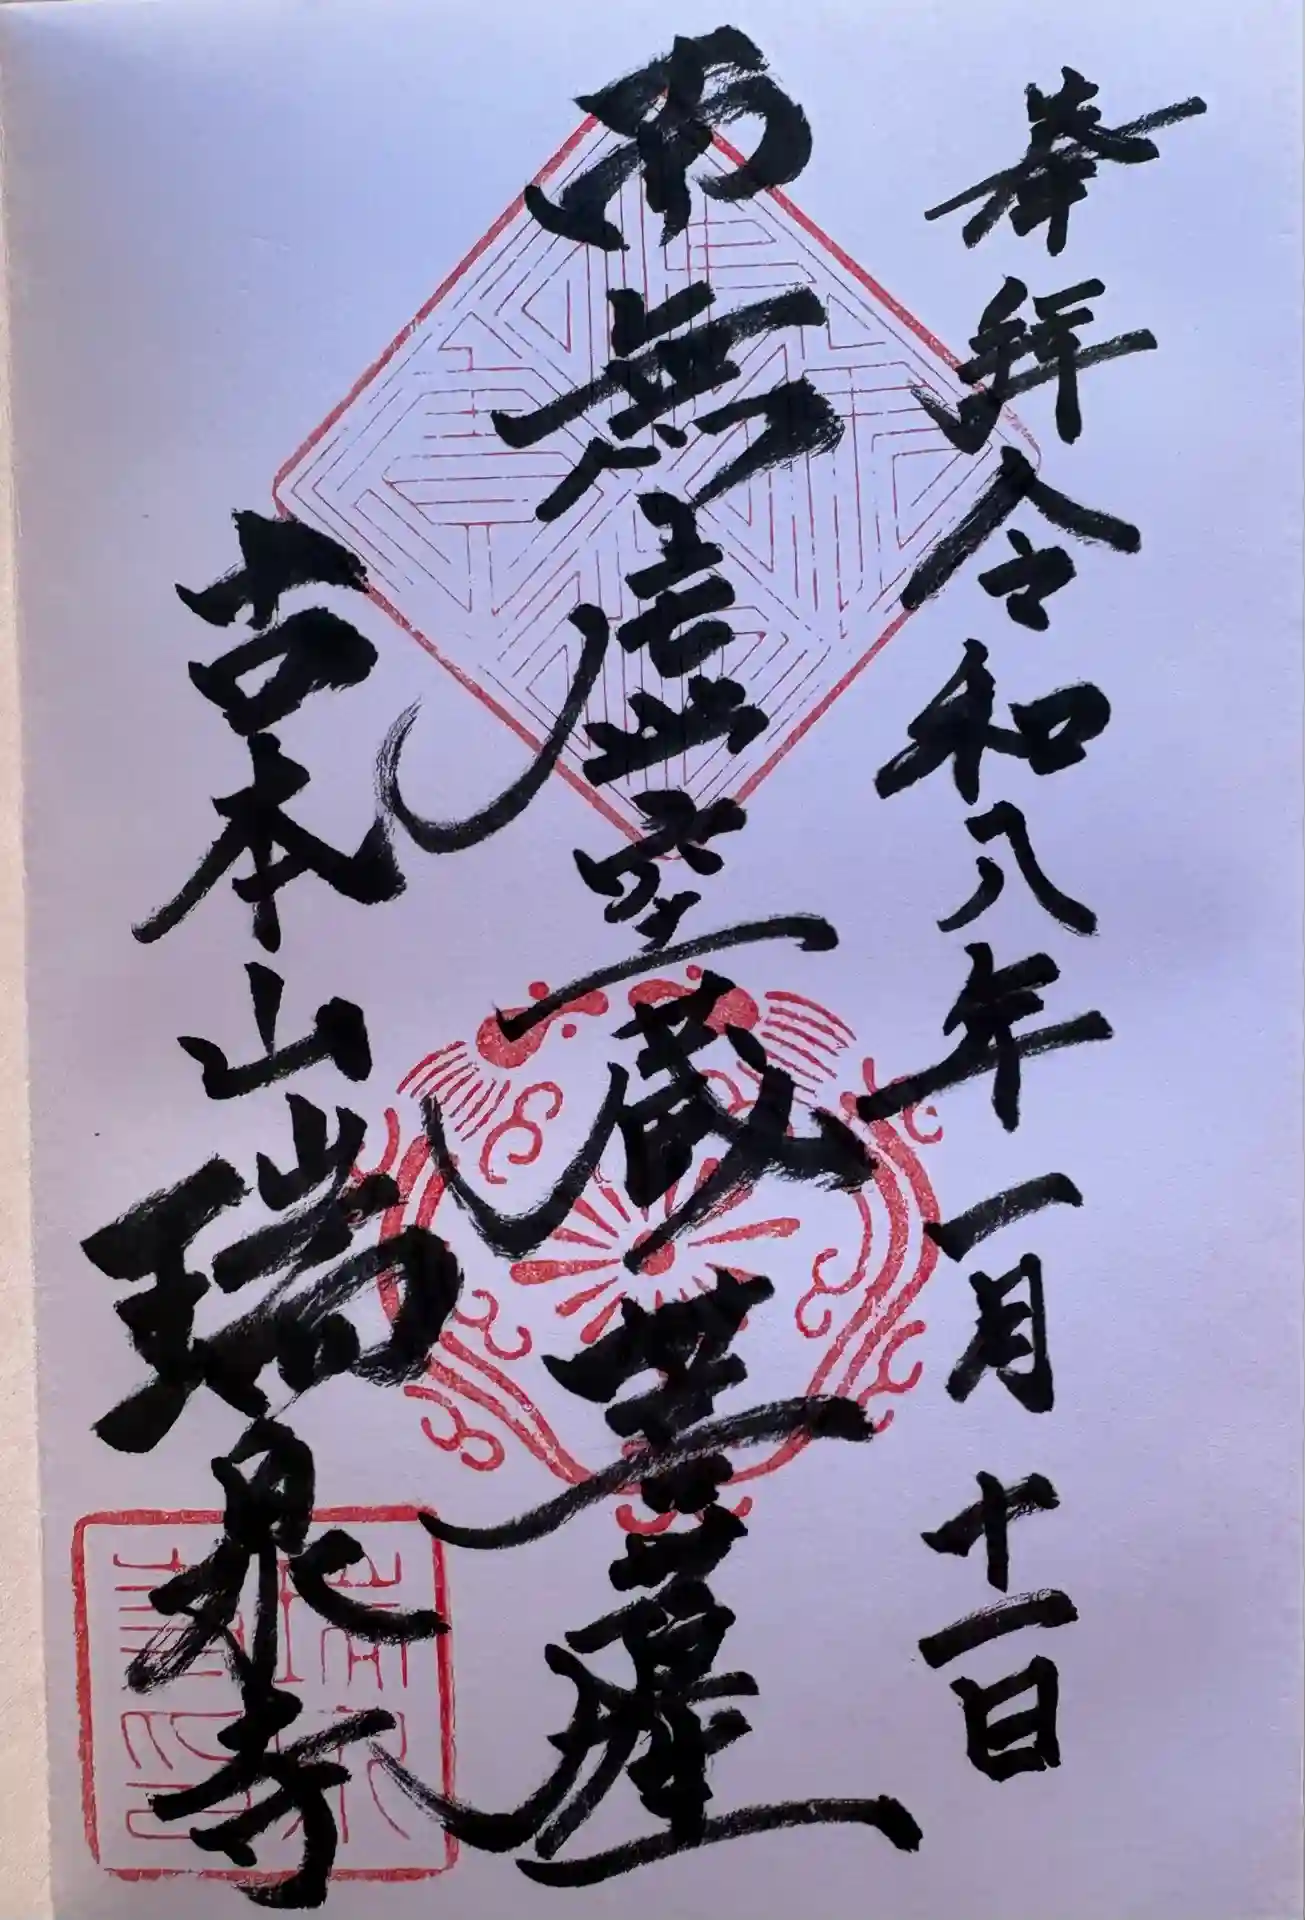 奉拝令和八年一月十一日
南無虚空蔵菩薩
吉本山瑞泉寺